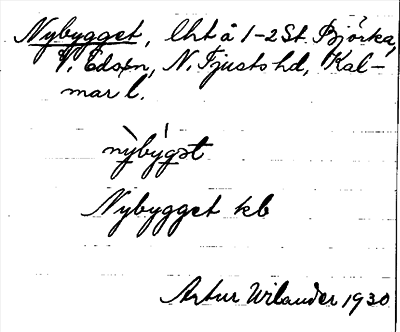 Nybygget, lht å 1-2 St. Björka,
V. Eds sn, N. Tjusts hd, Kal-
mar l.
nỳbýgət
Nybygget kb
Artur Wilander 1930